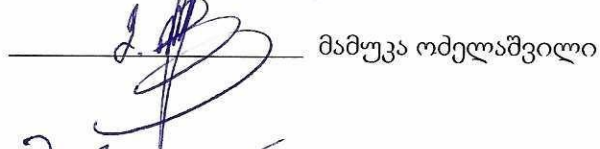 მამუკა ომელაშვილი